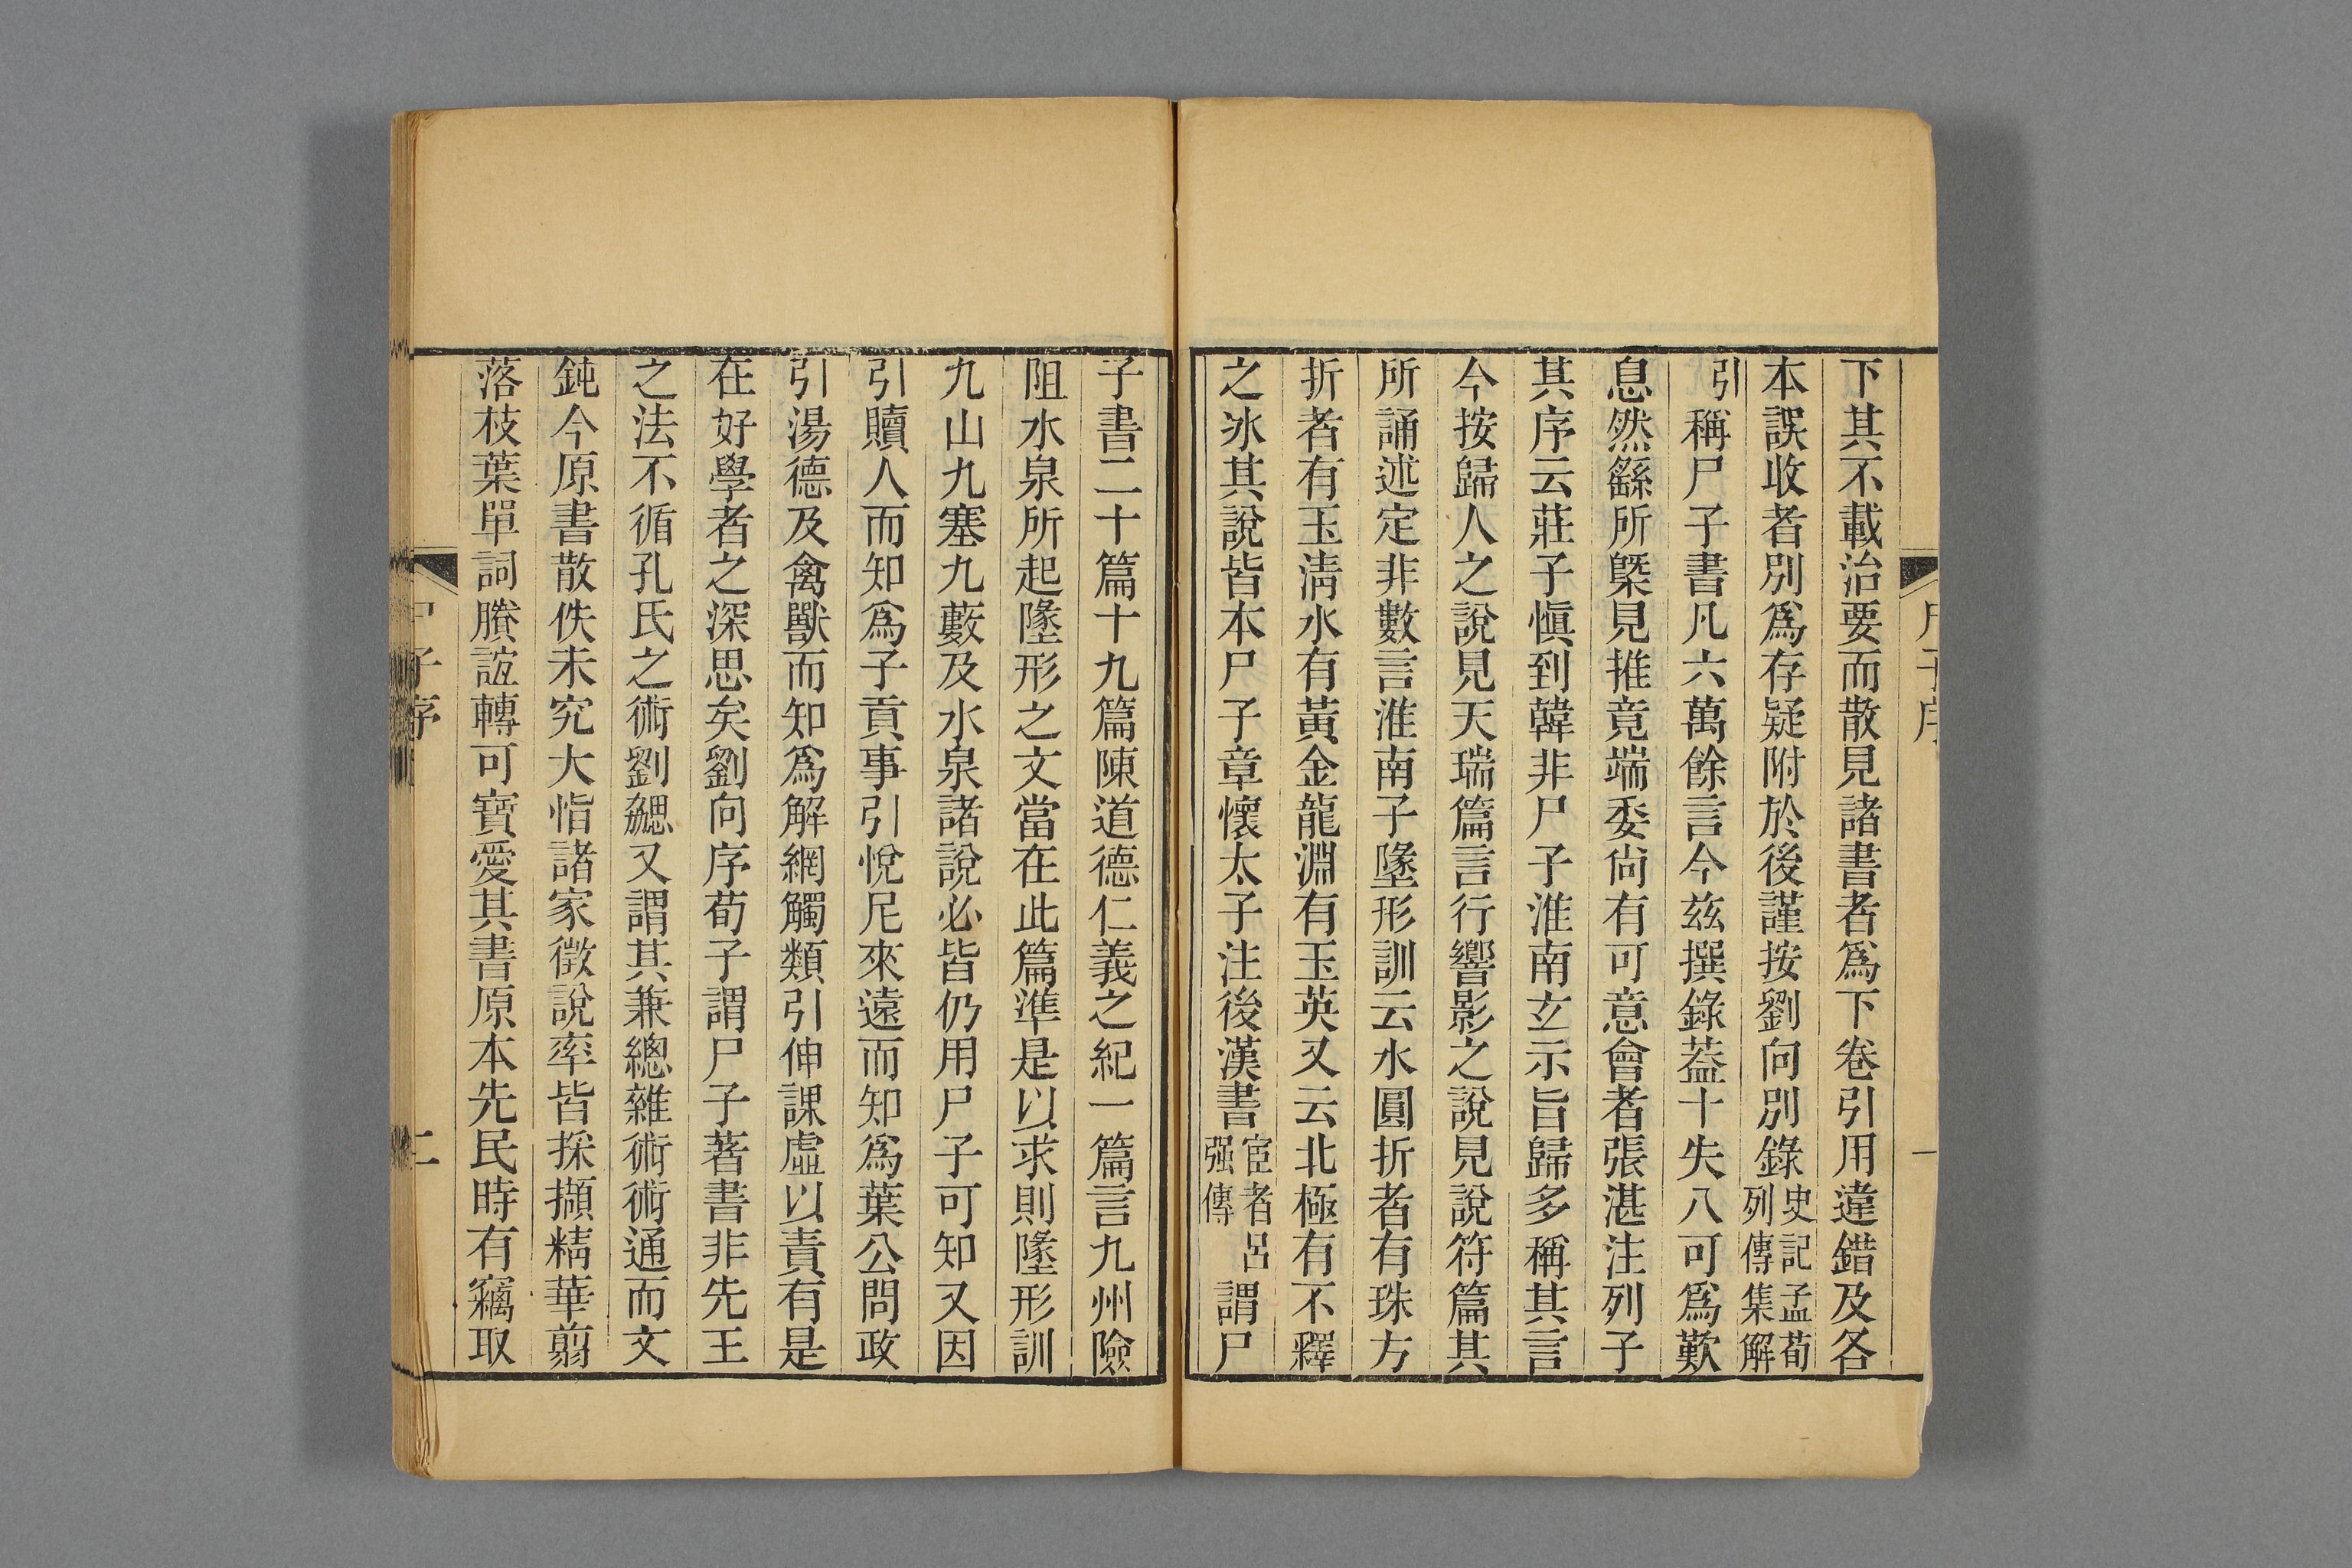 尸子序
一
下其不載治要而散見諸書者爲下卷引用違錯及各
本誤收者別爲存疑附於後謹按劉向別錄史記孟荀列傳集解
引稱尸子書凡六萬餘言今茲撰錄葢十失八可爲歎
息然繇所槩見推竟端委尙有可意會者張湛注列子
其序云莊子愼到韓非尸子淮南玄示旨歸多稱其言
今按歸人之說見天瑞篇言行響影之說見說符篇其
所誦述定非數言淮南子墬形訓云水圓折者有珠方
折者有玉淸水有黃金龍淵有玉英又云北極有不釋
之冰其說皆本尸子章懷太子注後漢書宦者呂强傳謂尸
子書二十篇十九篇陳道德仁義之紀一篇言九州險
阻水泉所起墬形之文當在此篇準是以求則墬形訓
九山九塞九藪及水泉諸說必皆仍用尸子可知又因
引贖人而知爲子貢事引悅尼來遠而知爲葉公問政
引湯德及禽獸而知爲解網觸類引伸課虛以責有是
在好學者之深思矣劉向序荀子謂尸子著書非先王
之法不循孔氏之術劉勰又謂其兼總雜術術通而文
鈍今原書散佚未究大恉諸家徵說率皆採擷精華翦
落枝葉單詞賸誼轉可寶愛其書原本先民時有竊取
尸子序
二